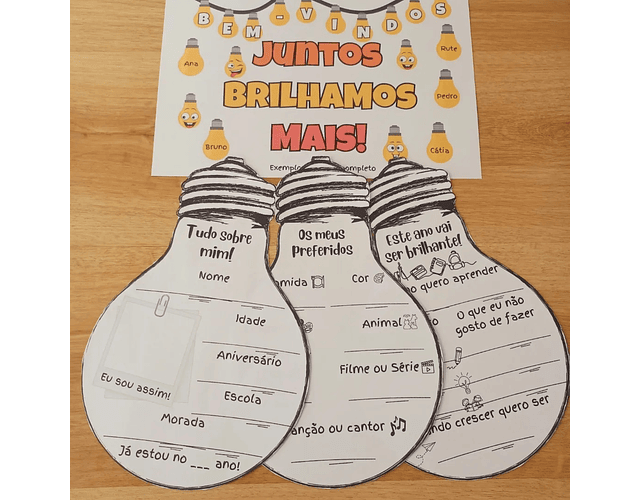 BEM-VINDOS
Ana
JUNTOS
Rute
BRILHAMOS
Pedro
MAIS!
Bruno
Cátia
Tudo sobre
mim!
Nome
Idade
Aniversário
Eu sou assim!
Escola
Morada
Já estou no ___ ano!
Os meus
Preferidos
Cor
Animal
Filme ou Série
ou cantor
Este ano vai
ser brilhante!
quero aprender
O que eu não
gosto de fazer
crescer quero ser